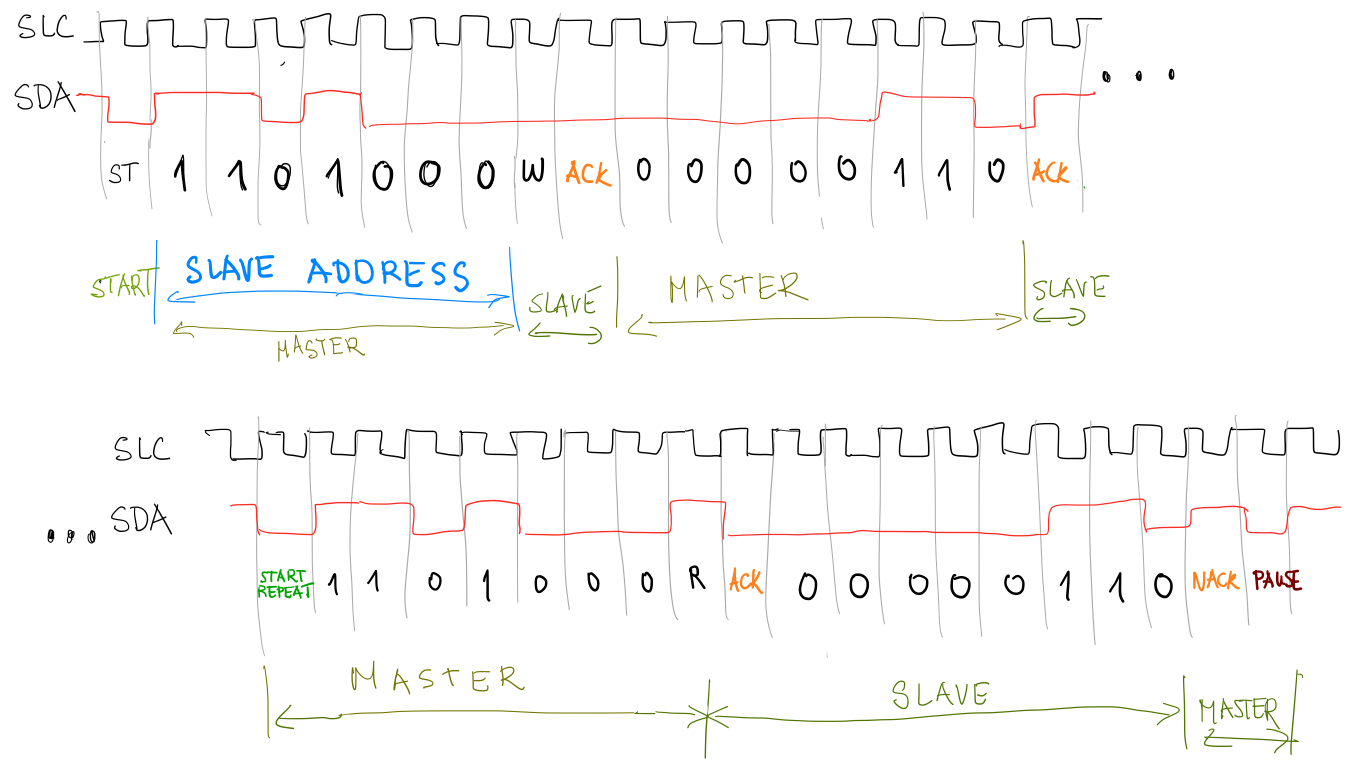 SLC
SDA
ST 1 1 0 1 0 0 0 W ACK 0 0 0 0 0 1 1 0 ACK
START SLAVE ADDRESS SLAVE MASTER SLAVE
MASTER
SLC
... SDA
START REPEAT 1 1 0 1 0 0 0 R ACK 0 0 0 0 0 1 1 0 NACK PAUSE
MASTER SLAVE MASTER